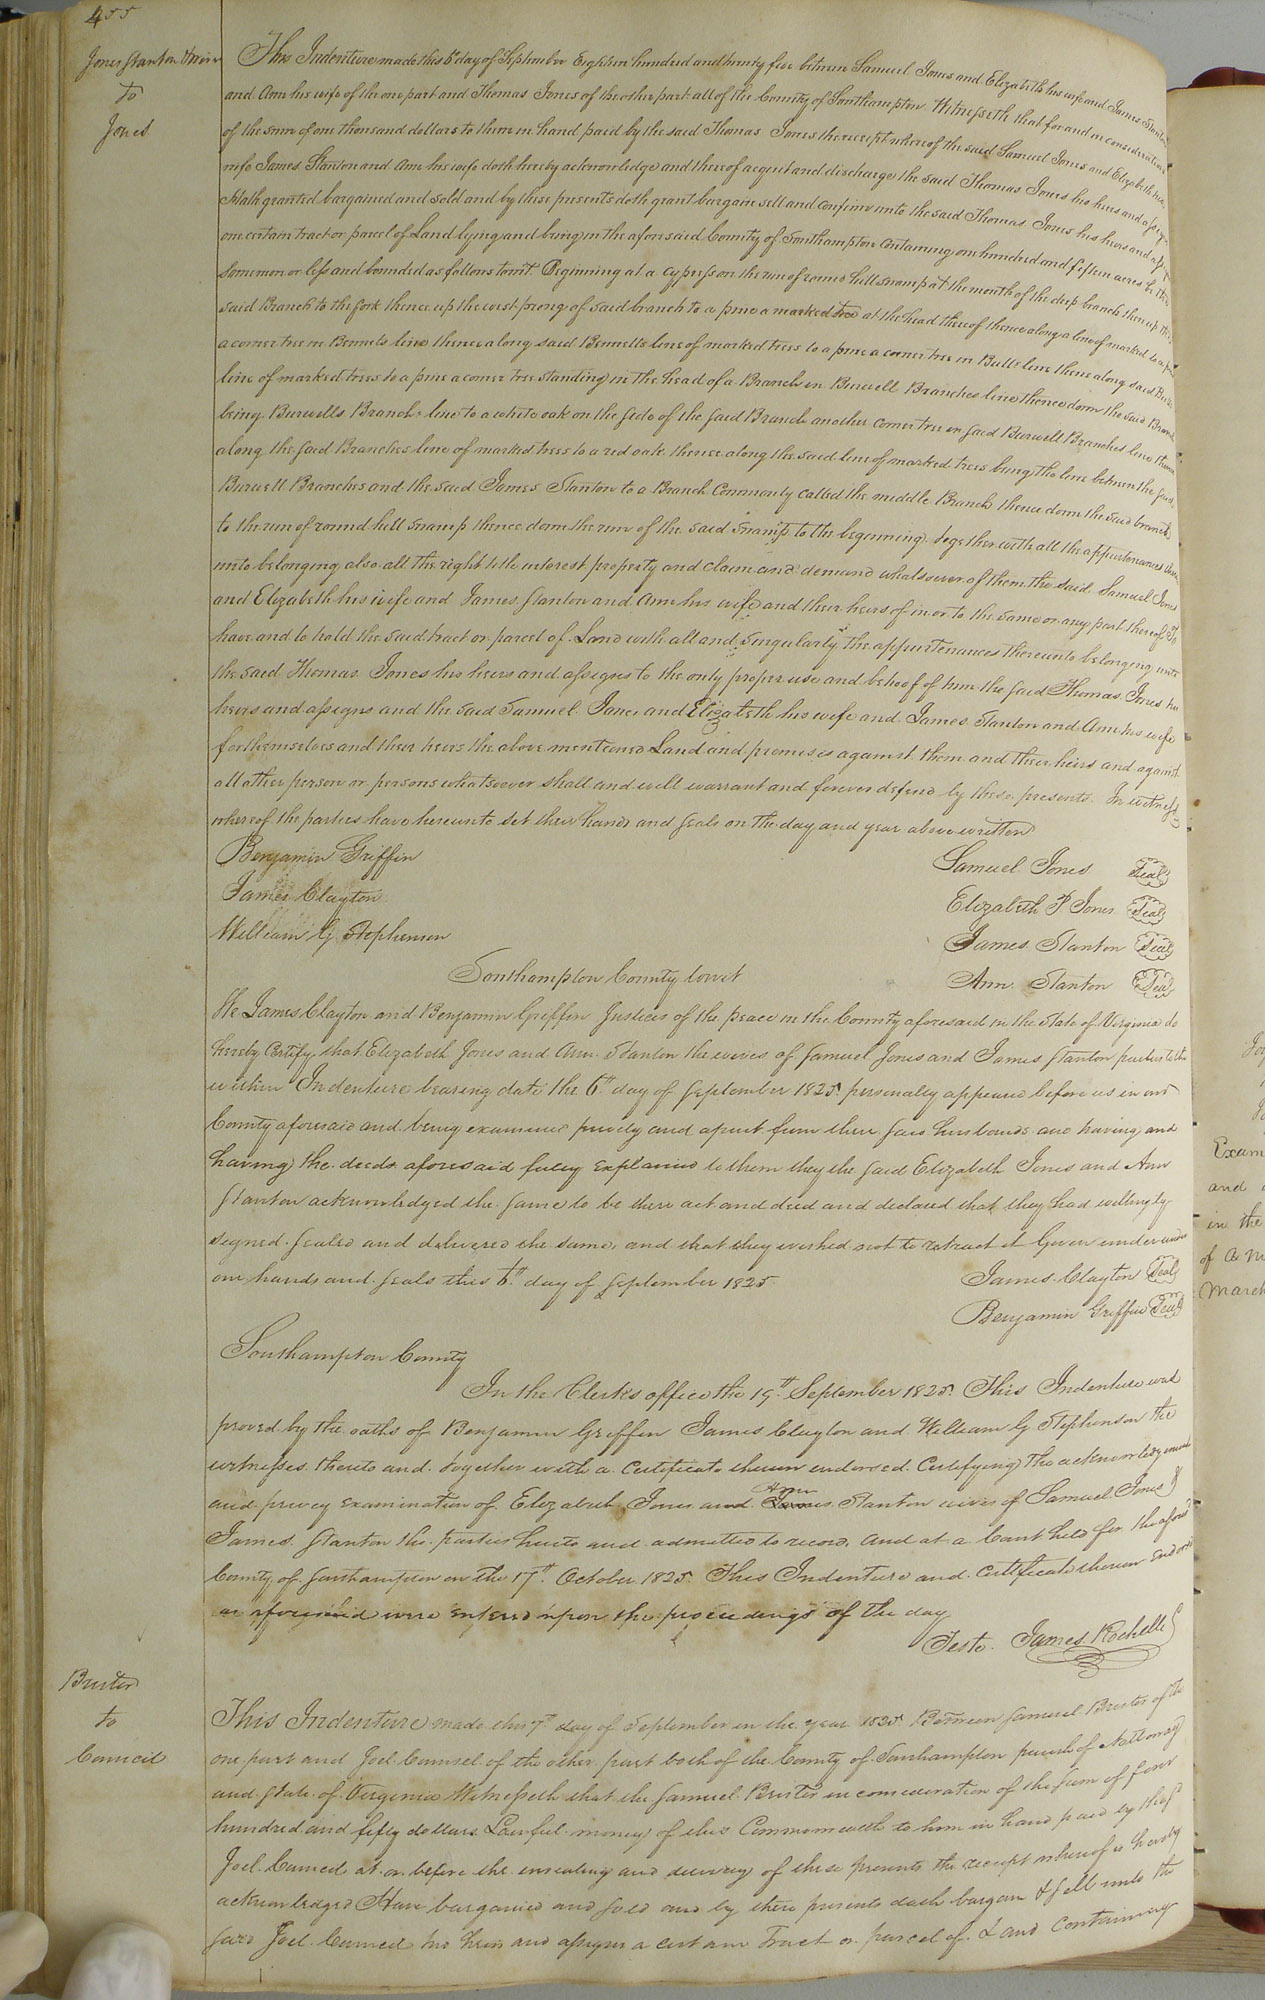 455
Jones Stanton & wives
to
Jones
This Indenture made this 6th day of September Eighteen hundred and twenty five between Samuel Jones and Elizabeth his wife and James Stanton
and Ann his wife of the one part and Thomas Jones of the other part all of the County of Southampton Witnesseth that for and in consideration
of the sum of one thousand dollars to them in hand paid by the said Thomas Jones the receipt whereof the said Samuel Jones and Elizabeth his
wife James Stanton and Ann his wife doth hereby acknowledge and thereof acquit and discharge the said Thomas Jones his heirs and assigns
Hath granted bargained and sold and by these presents doth grant bargain sell and confirm unto the said Thomas Jones his heirs and assigns
one certain tract or parcel of Land lying and being in the aforesaid County of Southampton Containing one hundred and fifteen acres be the
same more or less and bounded as follows towit. Beginning at a cypress on the run of round hill swamp at the mouth of the deep branch then up the
said Branch to the fork thence up the west prong of said branch to a pine a marked tree at the head thereof thence along a line of marked to a pine
a corner tree in Bennets line thence along said Bennetts line of marked trees to a pine a corner tree in Butts line thence along said Butts
line of marked trees to a pine a corner tree standing in the head of a Branch in Burwell Branches line thence down the said Branch
being Burwells Branchs line to a white oak on the side of the said Branch another corner tree in said Burwell Branches line thence
along the said Branches line of marked trees to a red oak thence along the said line of marked trees being the line between the said
Burwell Branches and the said James Stanton to a Branch Commonly called the middle Branch thence down the said branch
to the run of round hill swamp thence down the run of the said swamp to the beginning. together with all the appurtenances there
unto belonging also all the right title interest property and claim and demand whatsoever of them the said Samuel Jones
and Elizabeth his wife and James Stanton and Ann his wife and their heirs of in or to the same or any part thereof To
have and to hold the said tract or parcel of Land with all and singularly the appurtenances thereunto belonging unto
the said Thomas Jones his heirs and assigns to the only proper use and behoof of him the said Thomas Jones his
heirs and assigns and the said Samuel Jones and Elizabeth his wife and James Stanton and Ann his wife
for themselves and their heirs the above mentioned Land and premises against them and their heirs and against
all other person or persons whatsoever shall and will warrant and forever defend by these presents. In witness
whereof the parties have hereunto set their hands and seals on the day and year above written
Benjamin Griffin Samuel Jones Seal
James Clayton Elizabeth P Jones Seal
William G Stephenson James Stanton Seal
Southampton County towit Ann Stanton Seal
We James Clayton and Benjamin Griffin Justices of the peace in the County aforesaid in the State of Virginia do
hereby Certify that Elizabeth Jones and Ann Stanton the wives of Samuel Jones and James Stanton parties to the
within Indenture bearing date the 6th day of September 1825 personally appeared before us in our
County aforesaid and being examined privily and apart from their said husbands and having and
having the deeds aforesaid fully explained to them they the said Elizabeth Jones and Ann
Stanton acknowledged the same to be their act and deed and declared that they had willingly
signed sealed and delivered the same, and that they wished not to retract it Given under
our hands and seals this 6th day of September 1825 James Clayton Seal
Benjamin Griffin Seal
Southampton County
In the Clerks office the 19th September 1825 This Indenture was
proved by the oaths of Benjamin Griffin James Clayton and William G Stephenson the
witnesses thereto and together with a Certificate thereon endorsed Certifying the acknowledgement
and privy examination of Elizabeth Jones and Ann Stanton wives of Samuel Jones &
James Stanton the parties hereto and admitted to record. And at a Court held for the aforesd
County of Southampton on the 17th October 1825 This Indenture and Certificate thereon endorsed
as aforesaid were entered upon the proceedings of the day
Teste. James Rochelle
Brister
to
Council
This Indenture made this 7th day of September in the year 1825 Between Samuel Brister of the
one part and Joel Counsel of the other part both of the County of Southampton parish of Nottoway
and State of Virginia Witnesseth that the Samuel Brister in consideration of the sum of four
hundred and fifty dollars Lawful money of this Commonwealth to him in hand paid by the
Joel Council at or before the ensealing and delivery of these presents the receipt whereof is hereby
acknowledged Have bargained and sold and by these presents doth bargain & sell unto the
said Joel Council his heirs and assigns a certain Tract or parcel of Land Containing
Exam
and
in the
of a
March